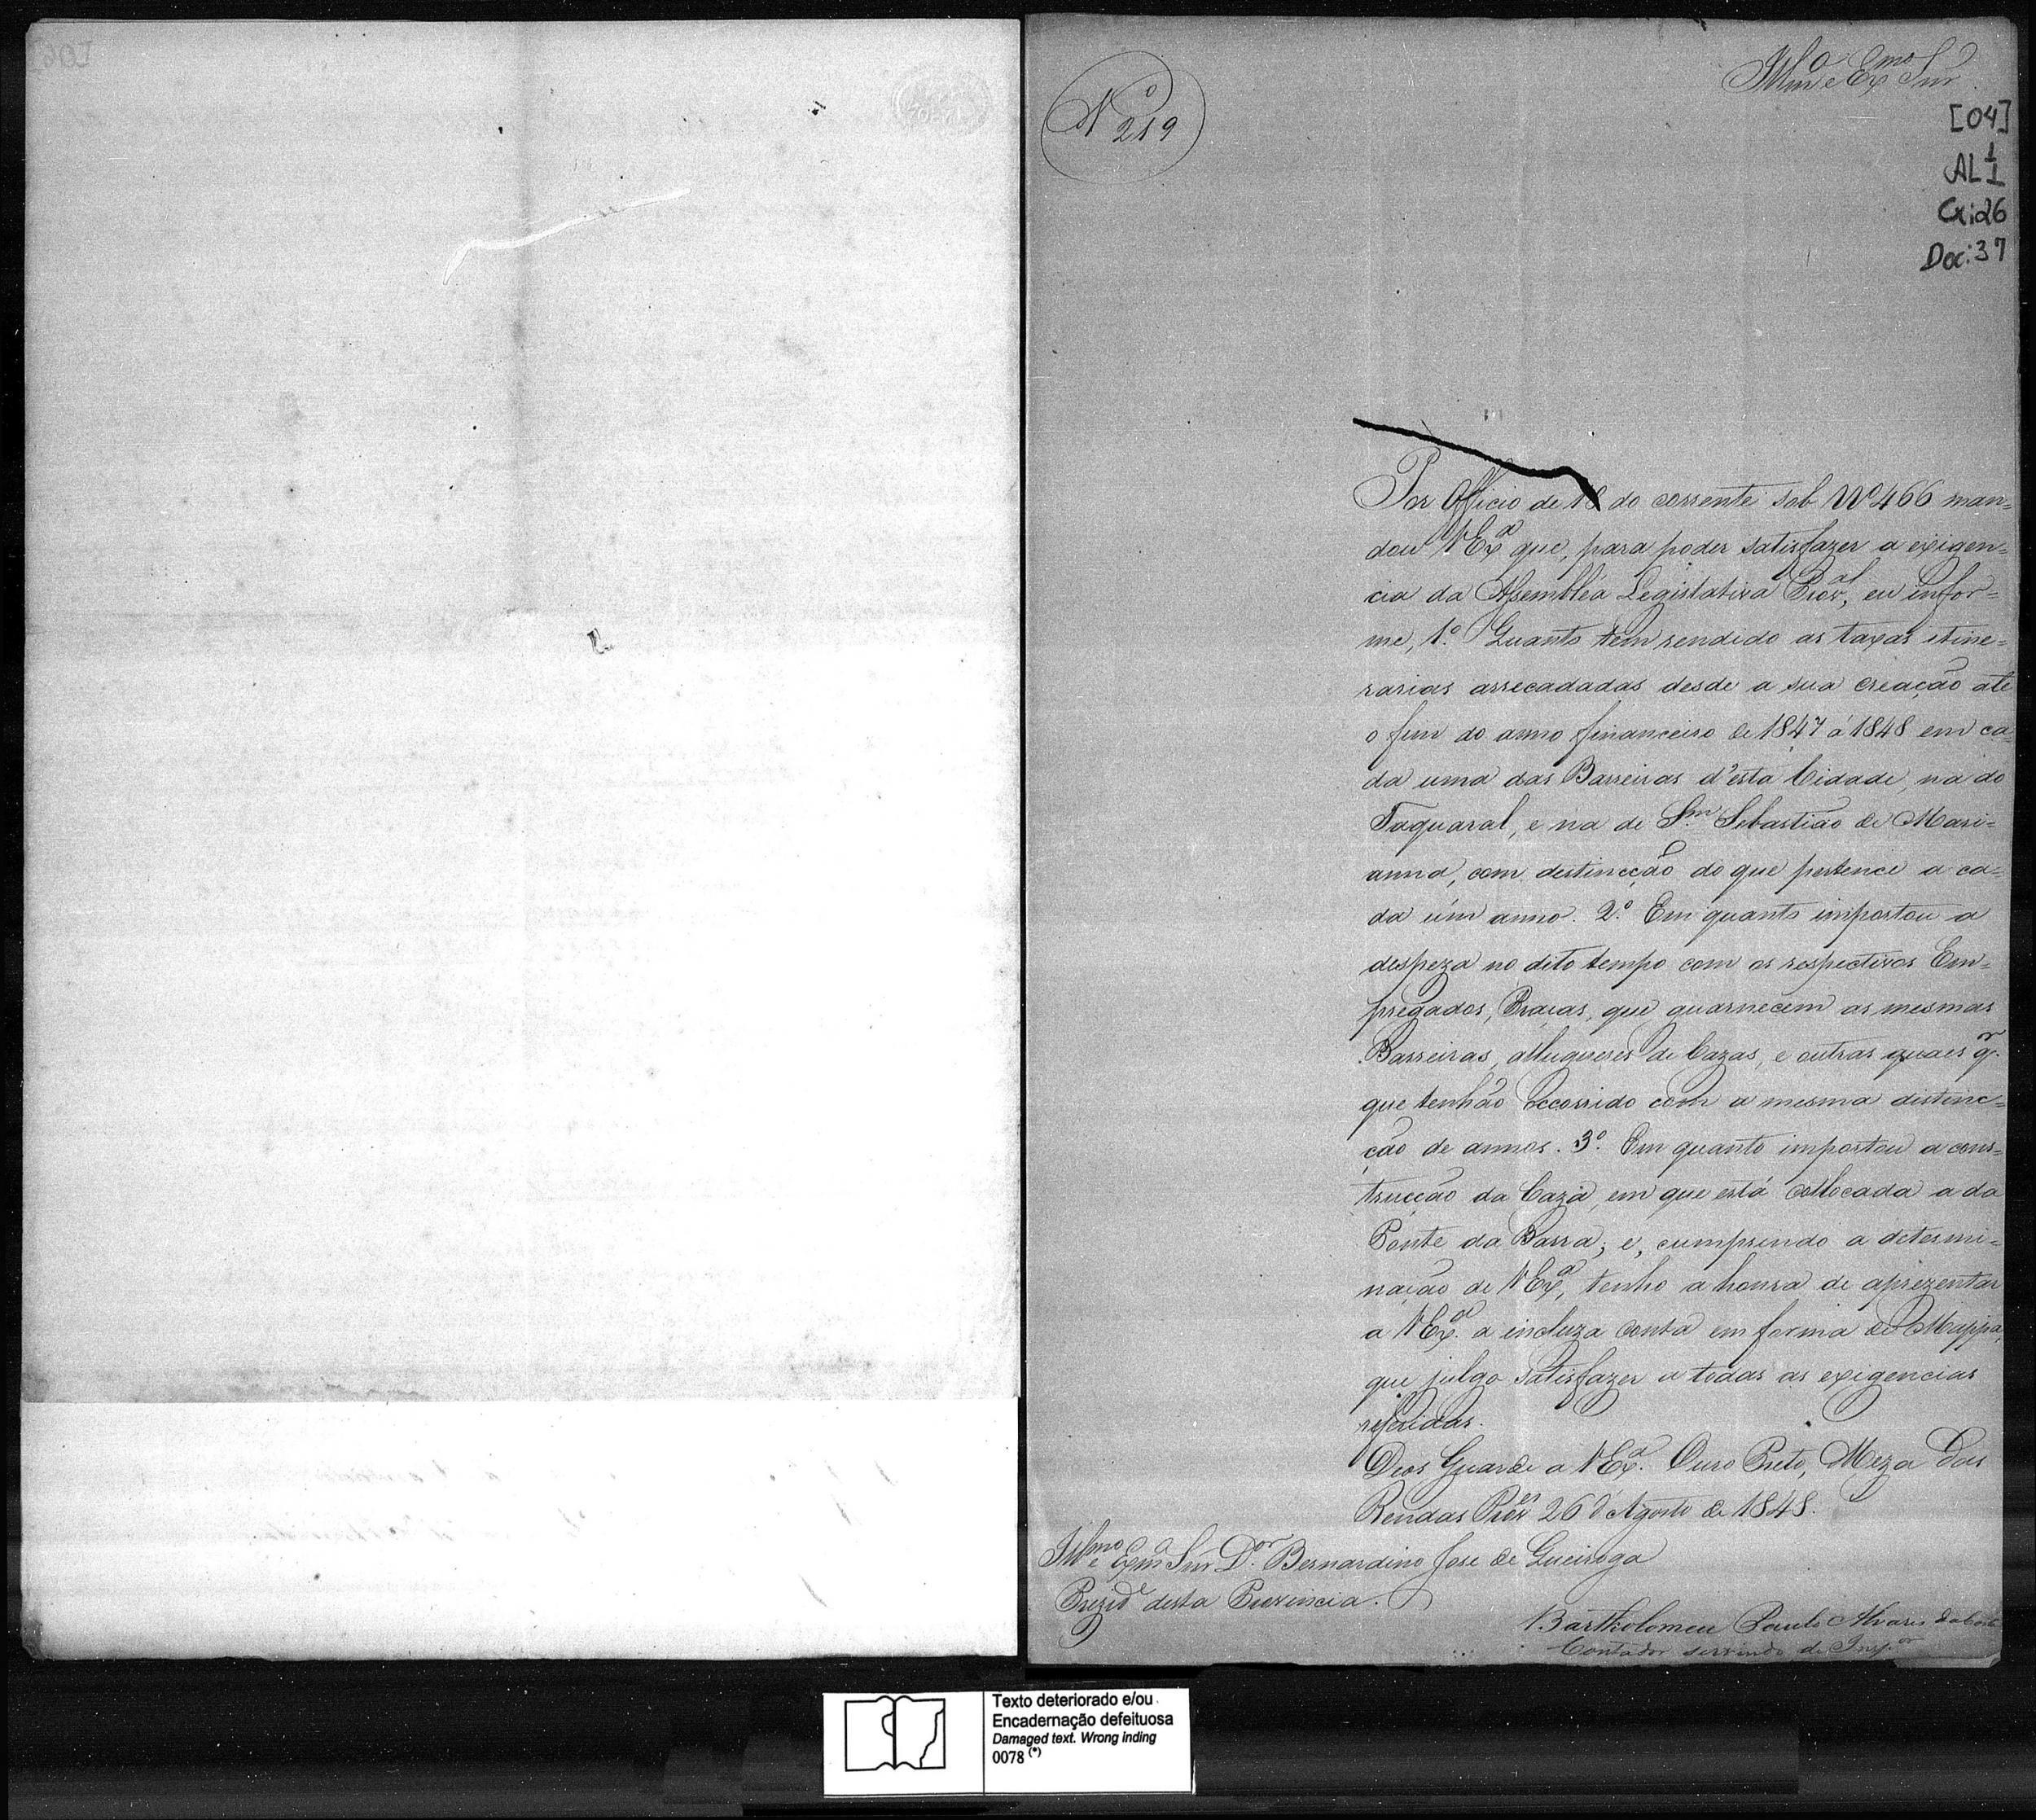 Illmo e Exmo Snr
No 219
[04]
AL 1
1
Cx:26
Doc:37
Por Officio de 18 do corrente sob No 466 man=
dou V Exa que, para poder satisfazer a exigen=
cia da Assembléa Legislativa Proval, eu infor=
me, 1.o Quanto tem rendido as taxas itine=
rarias arrecadadas desde a sua creação até
o fim do anno financeiro de 1847 á 1848 em ca=
da uma das Barreiras d'esta Cidade, na do
Taquaral, e na de Sm Sebastião de Mari=
anna, com destincção do que pertence a ca=
da úm anno. 2.o Em quanto importou a
despeza no dito tempo com os respectivos Em=
pregados, Praças, que guarnecem as mesmas
Barreiras, allugueres de Cazas, e outras quaes qr
que tenhão occorrido com a mesma distinc=
ção de annos. 3.o Em quanto importou a cons=
trucção da Caza, em que está collocada a da
Ponte da Barra; e, cumprindo a determi=
nação de V Exa, tenho a honra de aprezentar
a V Exa. a incluza conta em forma de Mappa,
que julgo satisfazer a todas as exigencias
referidas.
Deos Guarde a V Exa. Ouro Preto, Meza das
Rendas Proves 26 d'Agosto de 1848.
Illmo e Exmo Snr Dor Bernardino Jose de Queiroga
Prezide desta Provincia.
Bartholomeu Paulo Alvares da Costa
Contador servindo de Inspor
Texto deteriorado e/ou
Encadernação defeituosa
Damaged text. Wrong inding
0078 (*)